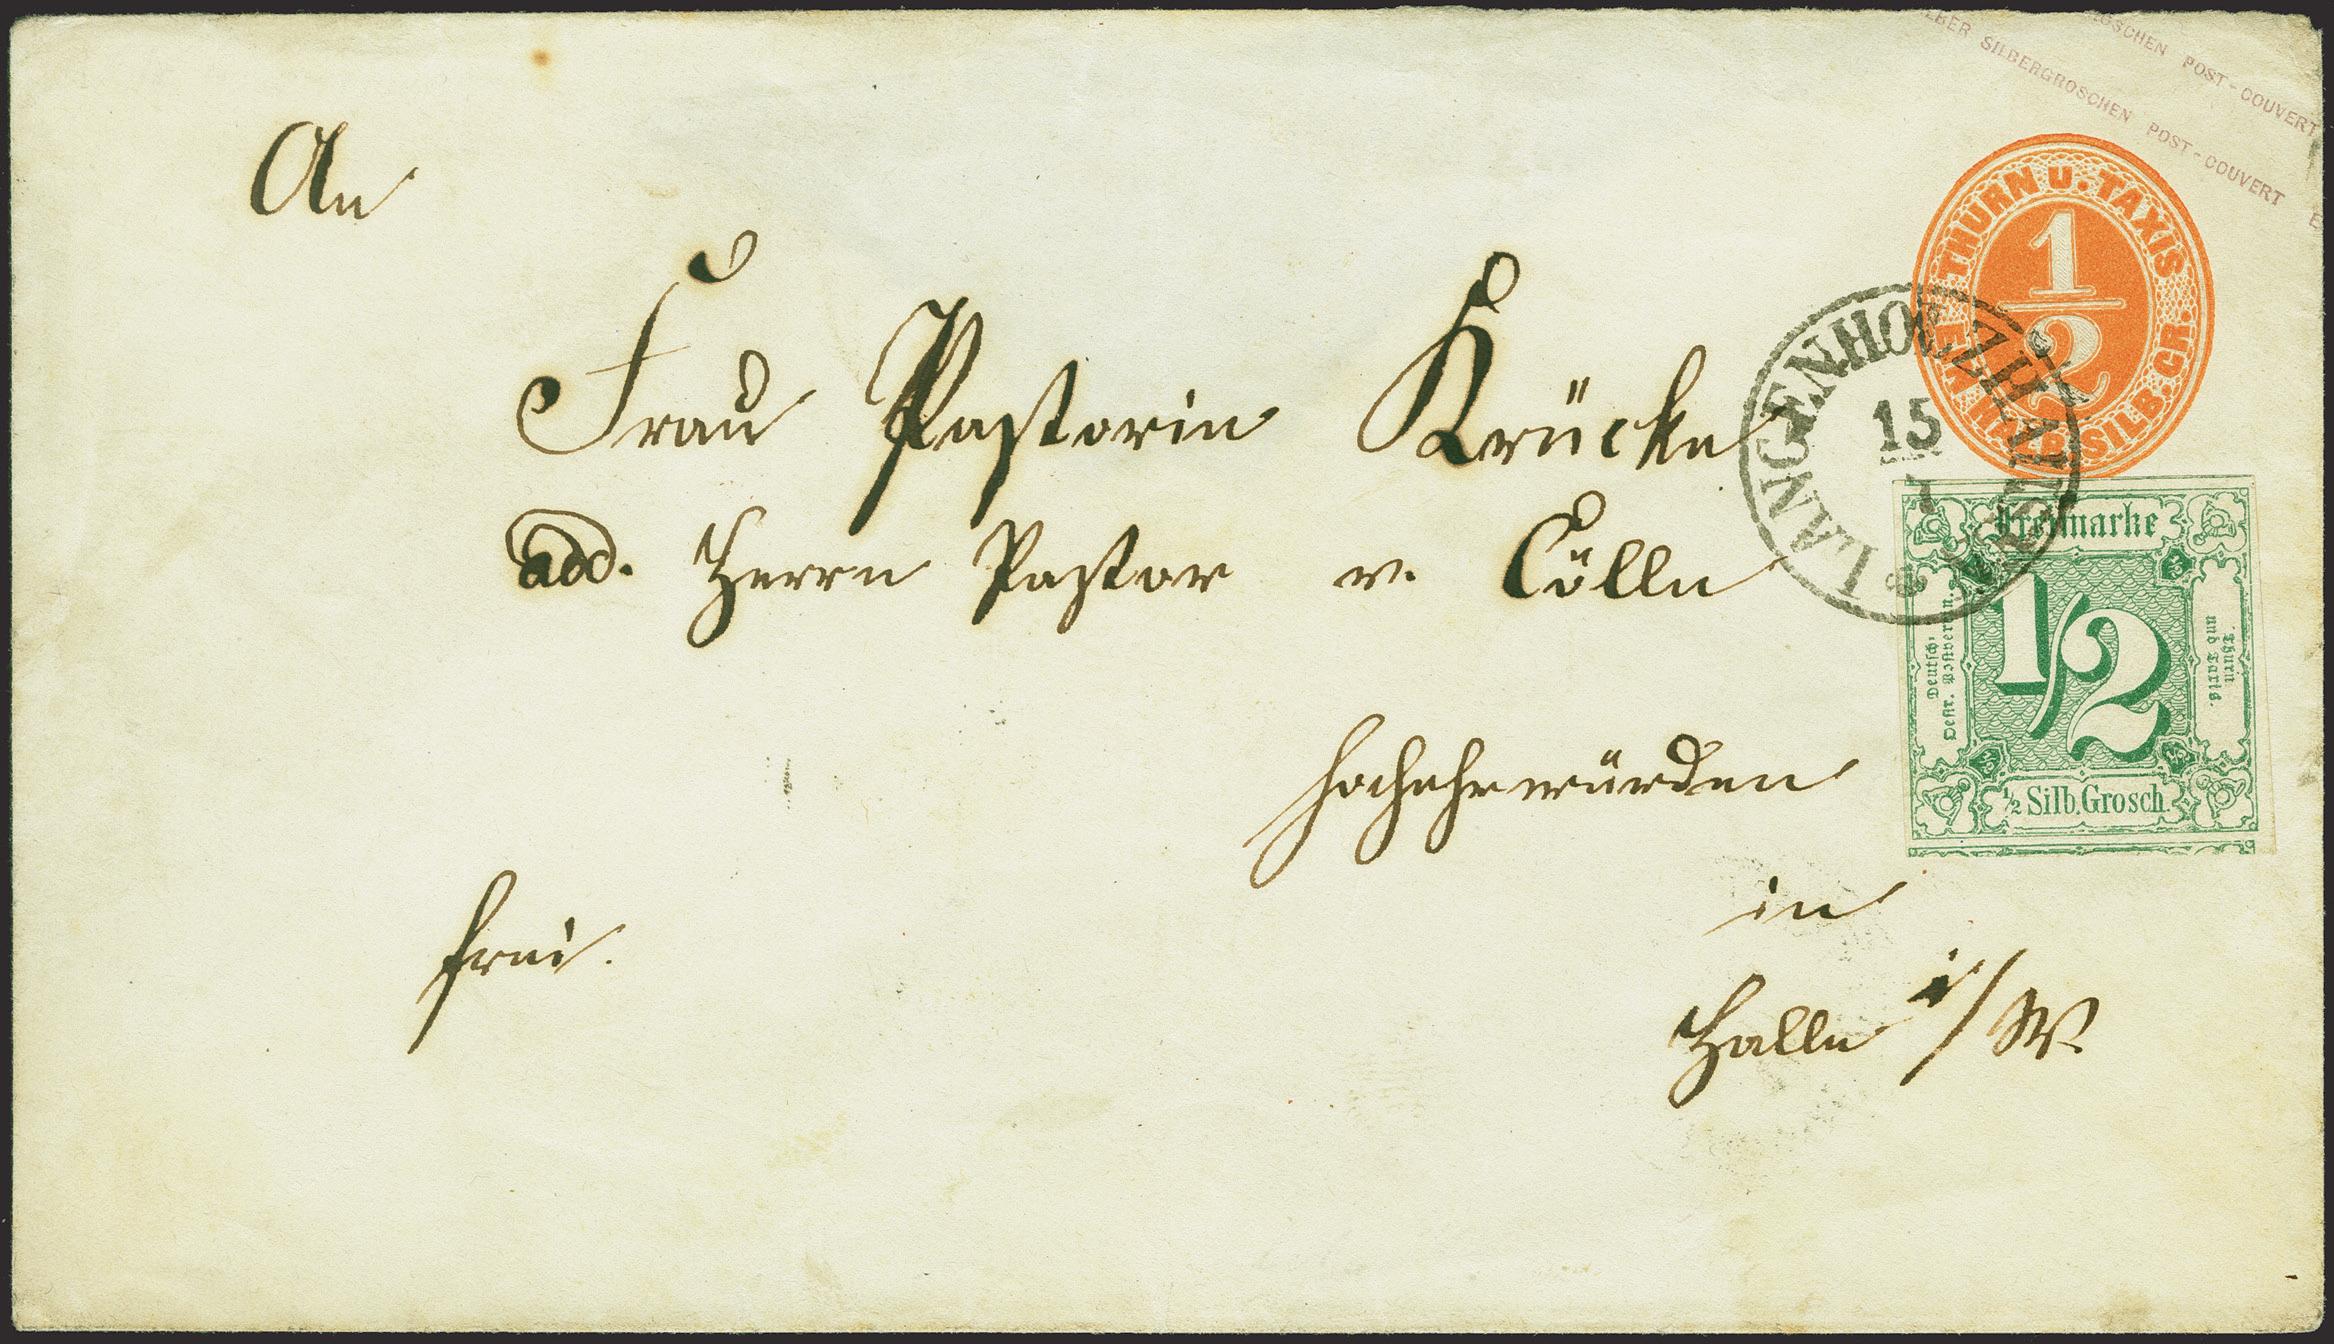 LBER SILBERGROSCHEN POST-COUVERT E
OSCHEN POST-COUVERT
THURN U. TAXIS
1/2
EIN HALB. SILB. GR.
LANGENHOLZHAUSEN
15
7
Freimarke
Deutsch-
Oestr. Postverein.
1/2
Thurn
und Taxis.
1/2 Silb. Grosch.
An
Frau Pastorin Krücke
add. Herrn Pastor v. Cölln
Hochehrwürden
in
Halle i/W.
frei.